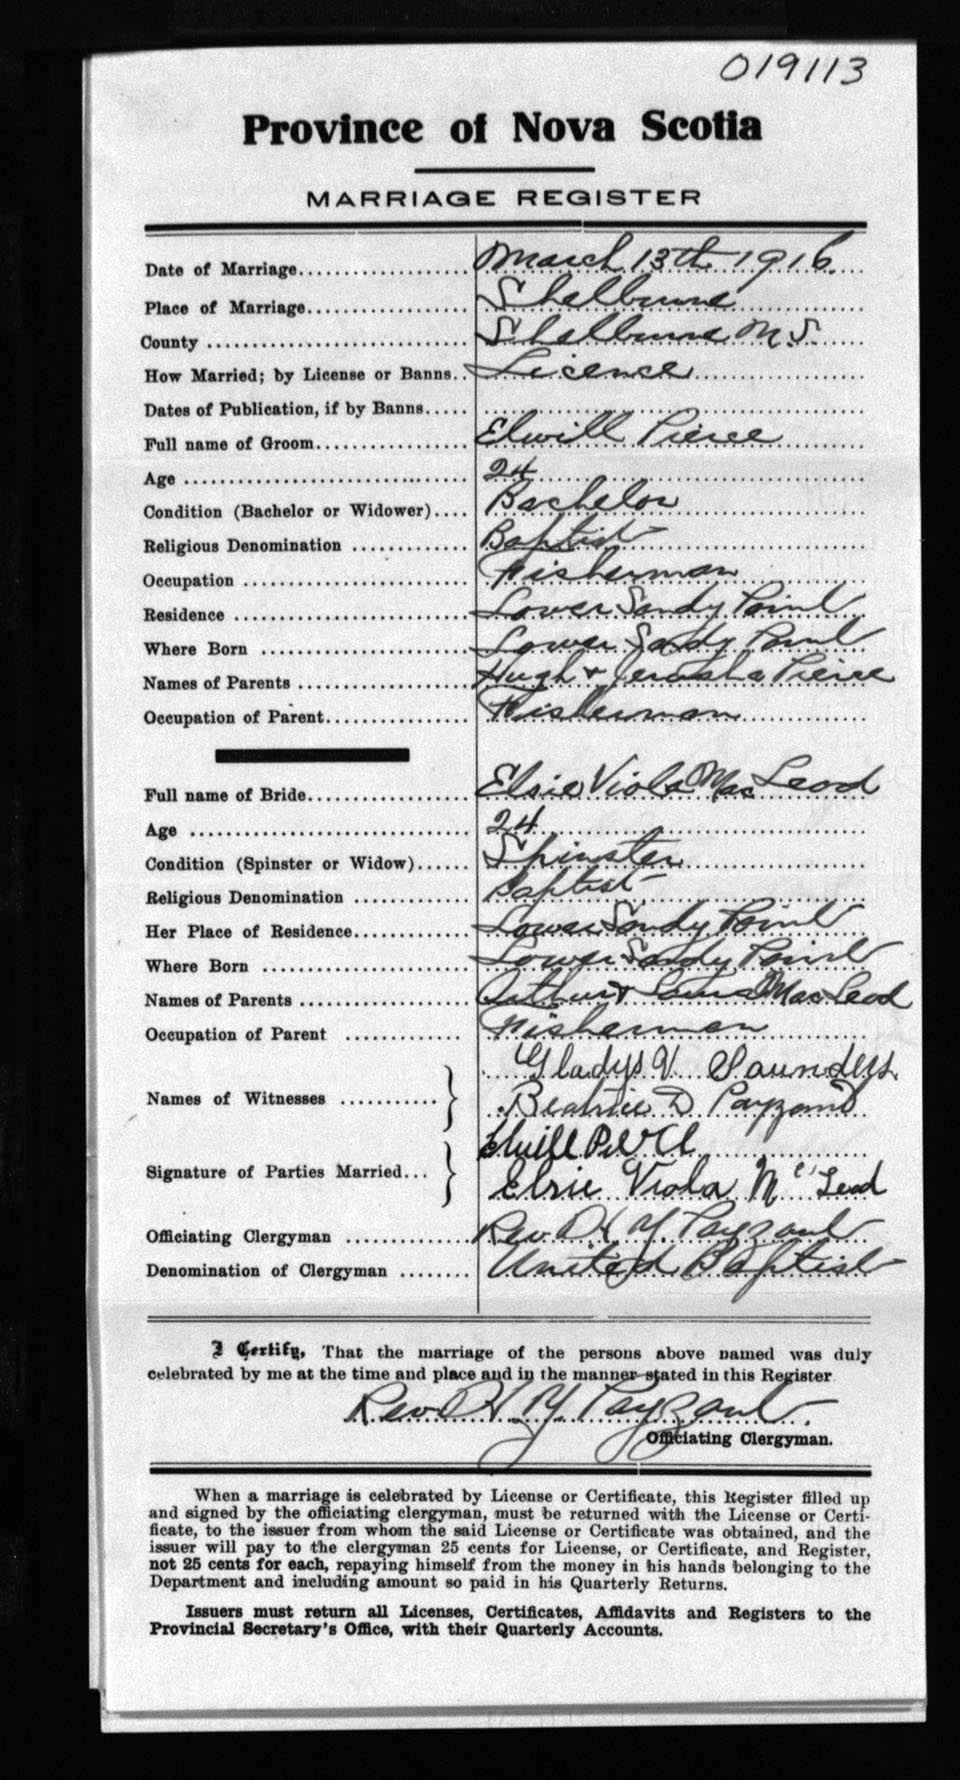 019113
Province of Nova Scotia
MARRIAGE REGISTER
Date of Marriage................... March 13th 1916
Place of Marriage.................. Shelburne
County ............................ Shelburne N.S.
How Married; by License or Banns... Licence
Dates of Publication, if by Banns.....
Full name of Groom................. Elwill Pierce
Age ............................... 24
Condition (Bachelor or Widower).... Bachelor
Religious Denomination ............ Baptist
Occupation ........................ Fisherman
Residence ......................... Lower Sandy Point
Where Born ........................ Lower Sandy Point
Names of Parents .................. Hugh & Jerusha Pierce
Occupation of Parent............... Fisherman
Full name of Bride................. Elsie Viola MacLeod
Age ............................... 24
Condition (Spinster or Widow)...... Spinster
Religious Denomination ............ Baptist
Her Place of Residence............. Lower Sandy Point
Where Born ........................ Lower Sandy Point
Names of Parents .................. Arthur & MacLeod
Occupation of Parent .............. Fisherman
Gladys V Saunders
Names of Witnesses ...........
Beatrice D Payzant
Elwill Pierce
Signature of Parties Married...
Elsie Viola McLeod
Officiating Clergyman ............. Rev. D H Y. Payzant
Denomination of Clergyman ........ United Baptist
I Certify, That the marriage of the persons above named was duly
celebrated by me at the time and place and in the manner stated in this Register
Rev. D H Y. Payzant.
Officiating Clergyman.
When a marriage is celebrated by License or Certificate, this Register filled up
and signed by the officiating clergyman, must be returned with the License or Certi-
ficate, to the issuer from whom the said License or Certificate was obtained, and the
issuer will pay to the clergyman 25 cents for License, or Certificate, and Register,
not 25 cents for each, repaying himself from the money in his hands belonging to the
Department and including amount so paid in his Quarterly Returns.
Issuers must return all Licenses, Certificates, Affidavits and Registers to the
Provincial Secretary's Office, with their Quarterly Accounts.